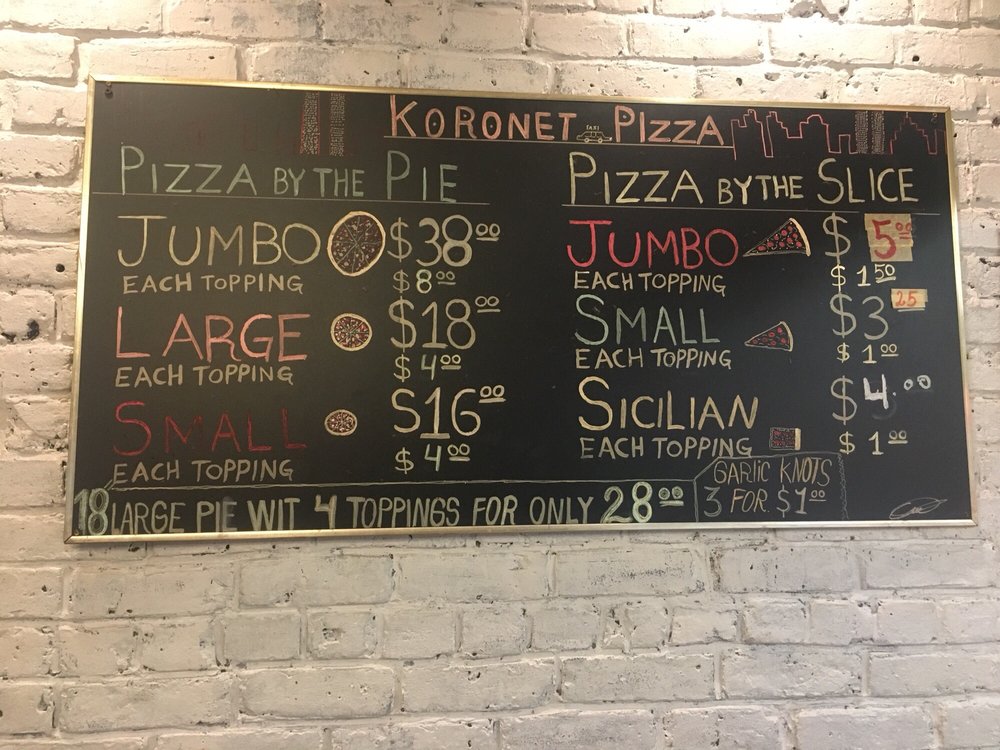 KORONET PIZZA
TAXI
PIZZA BY THE PIE
JUMBO $38.00
EACH TOPPING $8.00
LARGE $18.00
EACH TOPPING $4.00
SMALL $16.00
EACH TOPPING $4.00
PIZZA BY THE SLICE
JUMBO $5.00
EACH TOPPING $1.50
SMALL $3.25
EACH TOPPING $1.00
SICILIAN $4.00
EACH TOPPING $1.00
18 LARGE PIE WIT 4 TOPPINGS FOR ONLY 28.00
GARLIC KNOTS
3 FOR $1.00